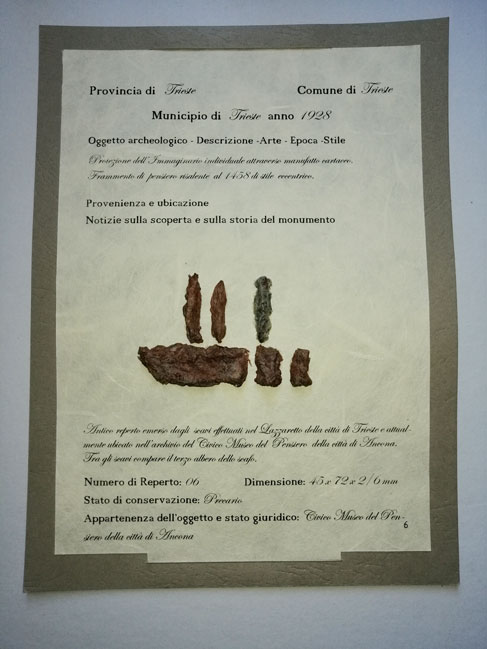 Provincia di Trieste Comune di Trieste
Municipio di Trieste anno 1928
Oggetto archeologico - Descrizione -Arte - Epoca -Stile
Proiezione dell'Immaginario individuale attraverso manufatto cartaceo.
Frammento di pensiero risalente al 1458 di stile eccentrico.
Provenienza e ubicazione
Notizie sulla scoperta e sulla storia del monumento
Antico reperto emerso dagli scavi effettuati nel Lazzaretto della città di Trieste e attual-
mente ubicato nell'archivio del Civico Museo del Pensiero della città di Ancona.
Tra gli scavi compare il terzo albero dello scafo.
Numero di Reperto: 06 Dimensione: 45 x 72 x 2/6 mm
Stato di conservazione: Precario
Appartenenza dell'oggetto e stato giuridico: Civico Museo del Pen-
siero della città di Ancona
6